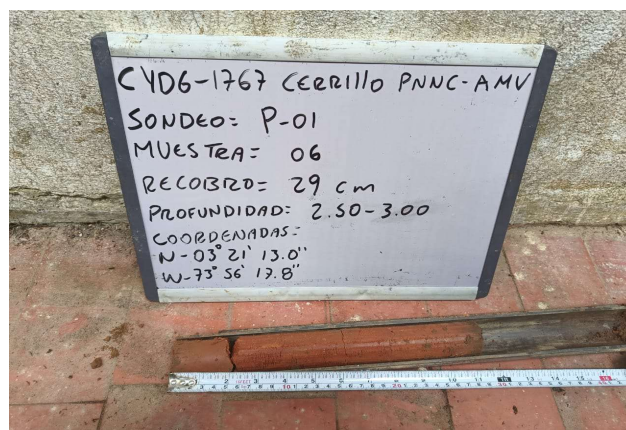 CYDG-1767 CERRIllO PNNC-AMV
SONDEO: P-01
MUESTRA: 06
RECOBRO: 29 cm
PROFUNDIDAD: 2.50-3.00
COORDENADAS:
N-03° 21' 13.0"
W-73° 56' 17.8"